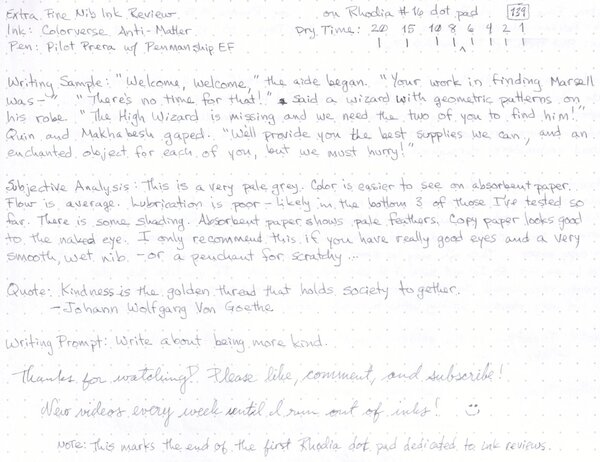 Extra Fine Nib Ink Review on Rhodia #16 dot pad 139
Ink: Colorverse Anti-Matter Dry Time: 20 15 10 8 6 4 2 1
Pen: Pilot Prera w/ Penmanship EF
Writing Sample: "Welcome, welcome," the aide began. "Your work in finding Marsell
was-" "There's no time for that!" said a wizard with geometric patterns on
his robe. "The High Wizard is missing and we need the two of you to find him!"
Quin and Makhabesh gaped. "We'll provide you the best supplies we can, and an
enchanted object for each of you, but we must hurry!"
Subjective Analysis: This is a very pale grey. Color is easier to see on absorbent paper.
Flow is average. Lubrication is poor - likely in the bottom 3 of those I've tested so
far. There is some shading. Absorbent paper shows pale feathers. Copy paper looks good
to the naked eye. I only recommend this if you have really good eyes and a very
smooth, wet nib. - or a penchant for scratchy...
Quote: Kindness is the golden thread that holds society together.
- Johann Wolfgang Von Goethe
Writing Prompt: Write about being more kind.
Thanks for watching! Please like, comment, and subscribe!
New videos every week until I run out of inks! :)
NOTE: This marks the end of the first Rhodia dot pad dedicated to ink reviews.